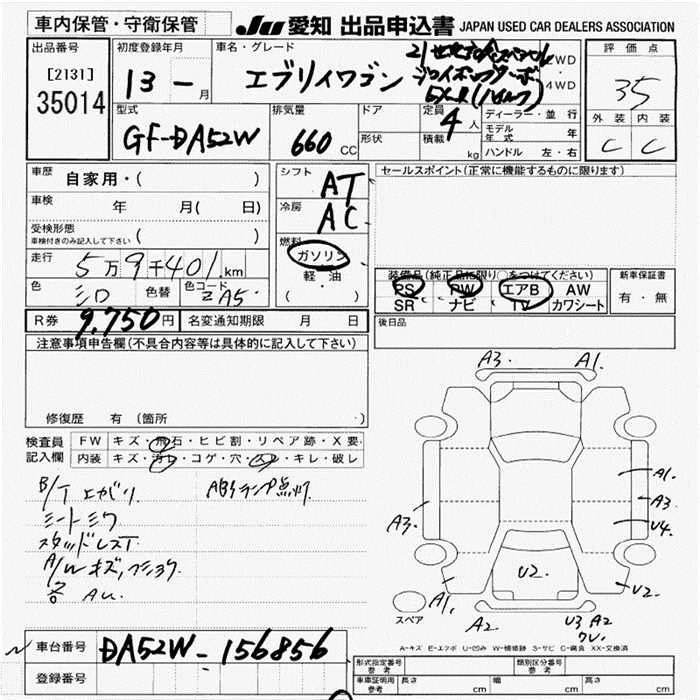 車内保管・守衛保管
JU 愛知 出品申込書 JAPAN USED CAR DEALERS ASSOCIATION
出品番号 初度登録年月 車名・グレード 評価点
[2131]
35014
13 - 月
エブリイワゴン
2WD
4WD
35
外装 内装
C C
型式 排気量 ドア 定員 ディーラー・並行
GF-DA52W
660 CC
4 人
形状 積載 kg
モデル年式 年
ハンドル 左・右
車歴 自家用・( )
車検 年 月( 日)
受検形態
車検付きのみ記入して下さい ( )
走行 5万9千401 km
色 シロ 色替 色コード ZA5
シフト AT
冷房 AC
燃料
ガソリン
軽・油
( )
セールスポイント(正常に機能するものに限ります)
装備品(純正品に限り○をつけてください) 新車保証書
PS PW エアB AW
SR ナビ TV カワシート
有・無
R券 9,750円 名変通知期限 月 日
後日品
注意事項申告欄(不具合内容等は具体的に記入して下さい)
修復歴 有 (箇所 )
検査員
記入欄
FW キズ・飛石・ヒビ割・リペア跡・X要
内装 キズ・汚レ・コゲ・穴・スレ・キレ・破レ
ABSランプ点灯
スタッドレスT
A3. A1.
A1.
A3
A3.
U4.
U2.
U2.
A1.
A2.
U3 A2
スペア
A-キズ E-エクボ U-凹み W-補修跡 S-サビ C-腐食 XX-交換済
車台番号 DA52W-156856
登録番号
形式指定番号
参考
類別区分番号
参考
車庫証明用
参考
長さ cm 幅 cm 高さ cm